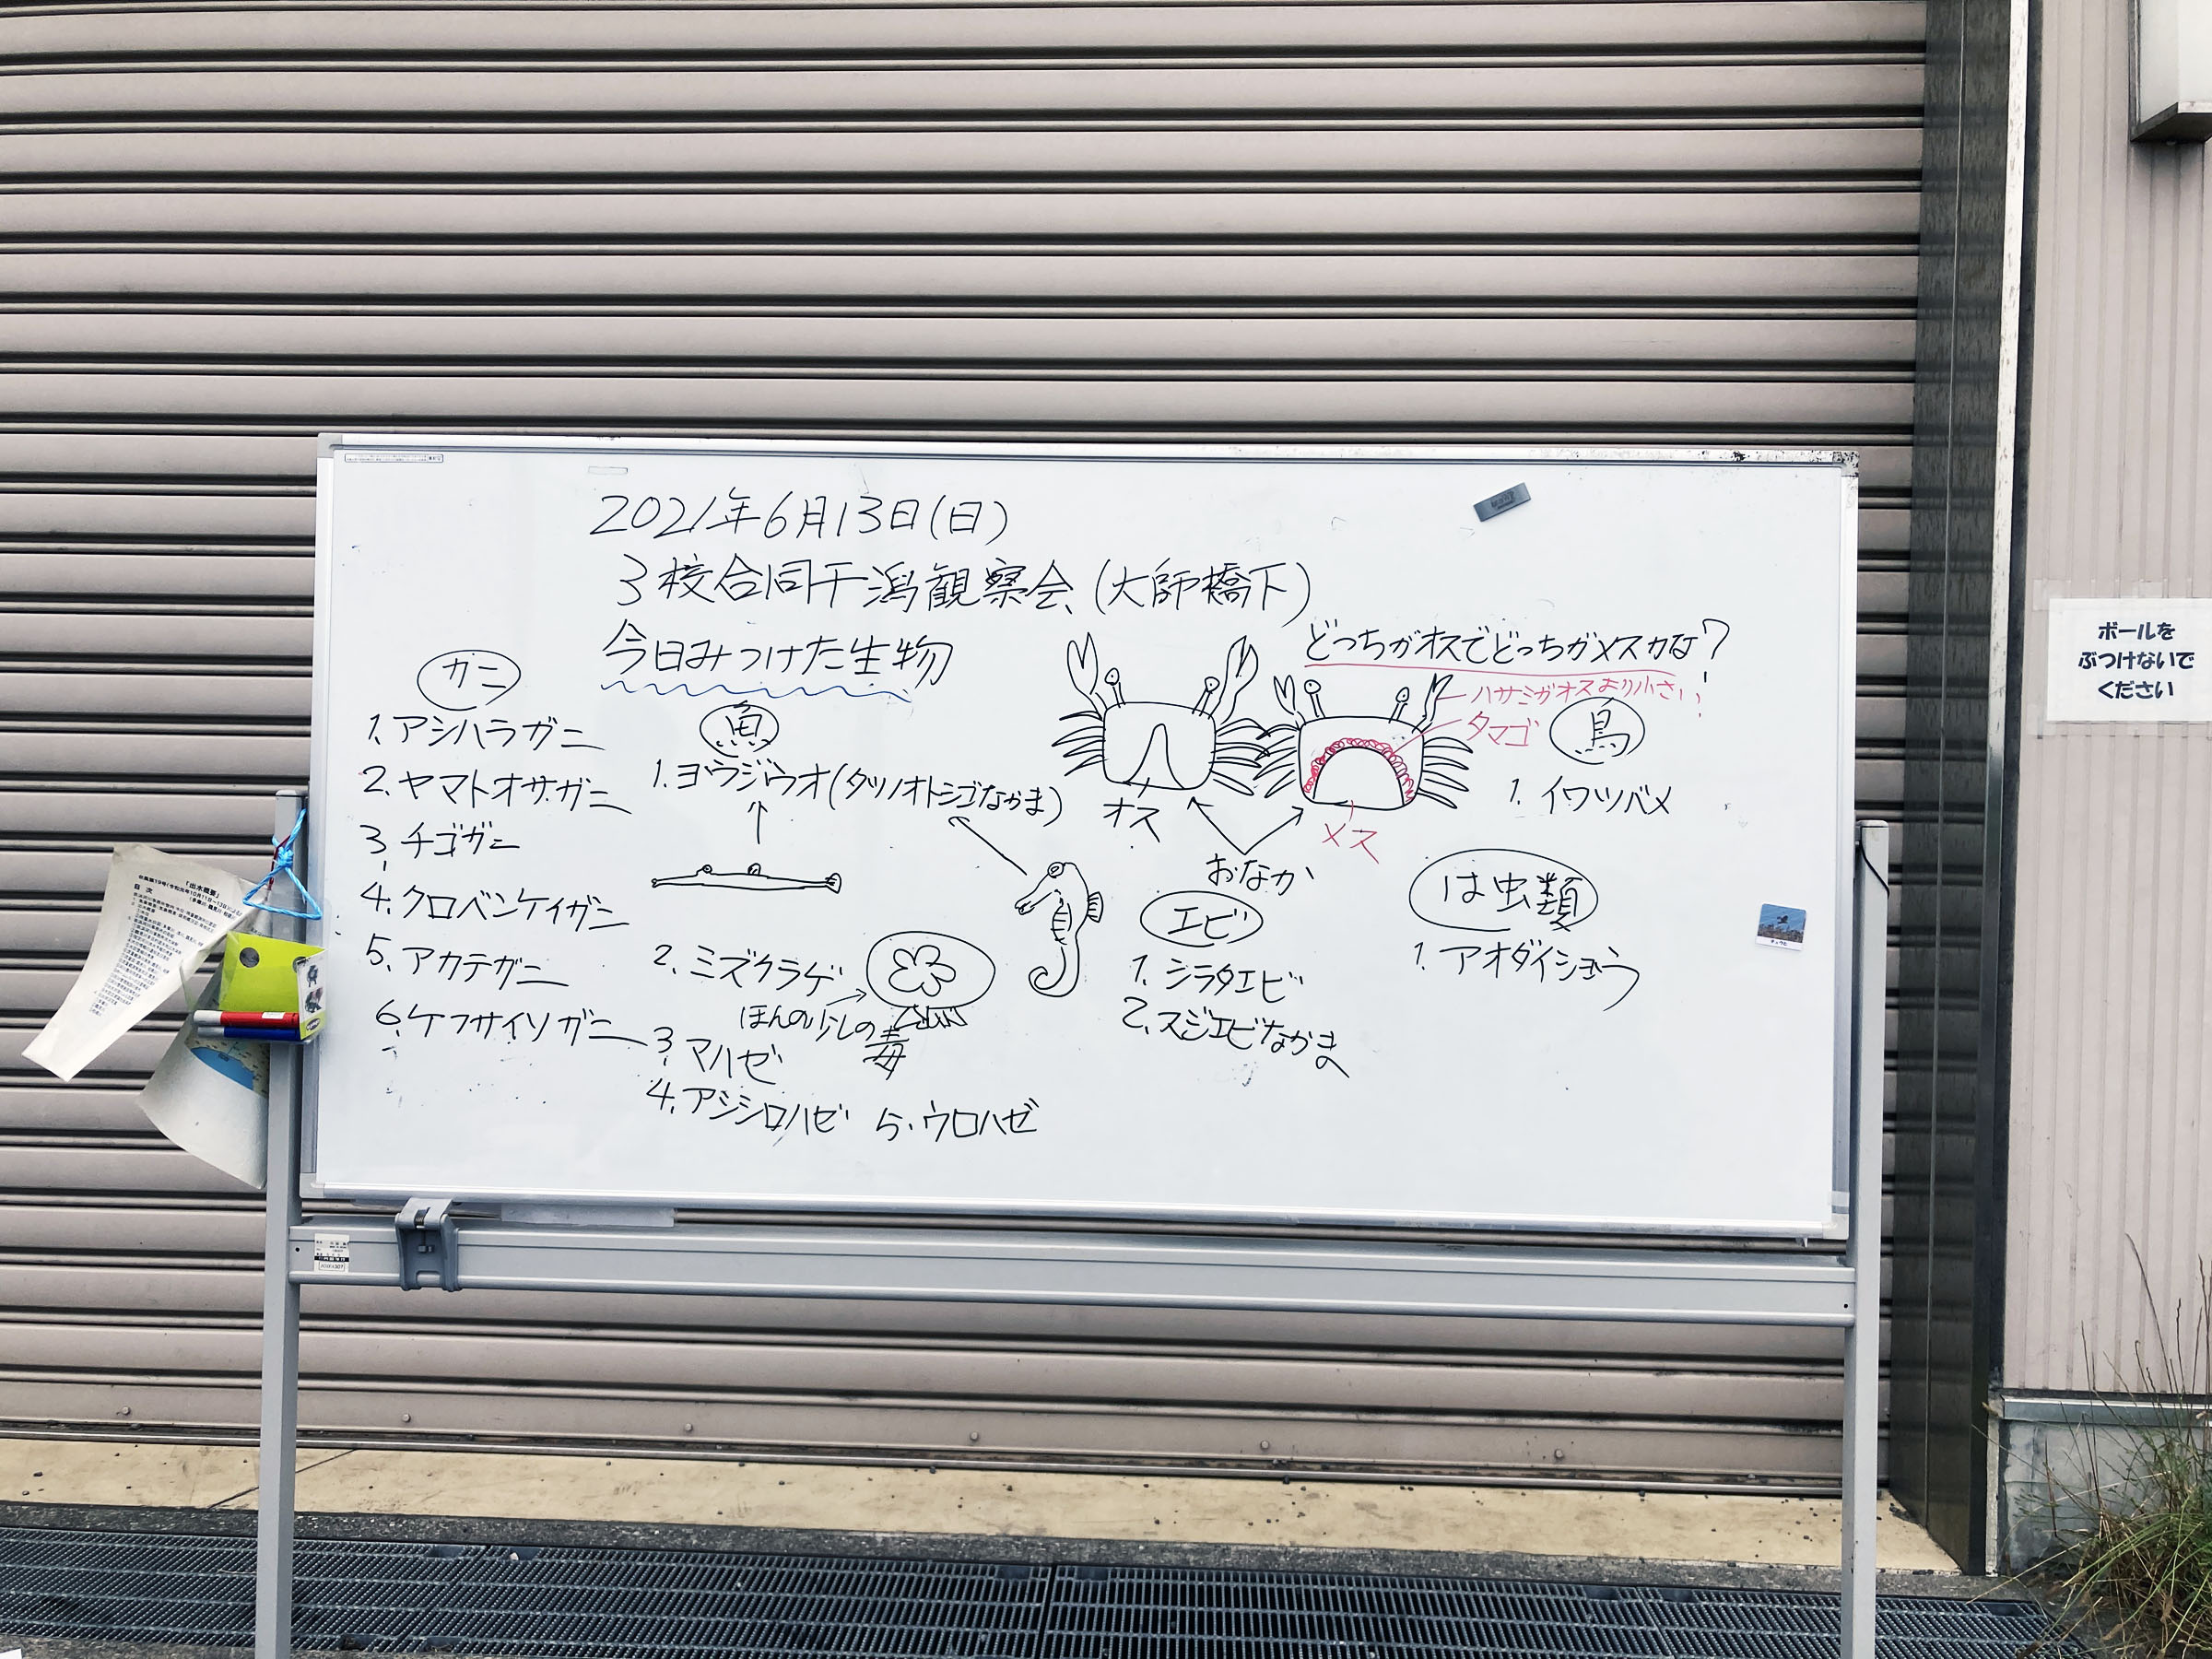 2021年6月13日(日)
3校合同干潟観察会(大師橋下)
今日みつけた生物
カニ
1. アシハラガニ
2. ヤマトオサガニ
3. チゴガニ
4. クロベンケイガニ
5. アカテガニ
6. ケフサイソガニ
魚
1. ヨウジウオ(タツノオトシゴなかま)
2. ミズクラゲ
ほんの少しの
毒
3. マハゼ
4. アシシロハゼ 5. ウロハゼ
どっちがオスでどっちがメスかな?
ハサミがオスより小さい
タマゴ
オス
メス
おなか
エビ
1. シラタエビ
2. スジエビなかま
鳥
1. イワツバメ
は虫類
1. アオダイショウ
「出水概要」
目次
ボールを
ぶつけないで
ください